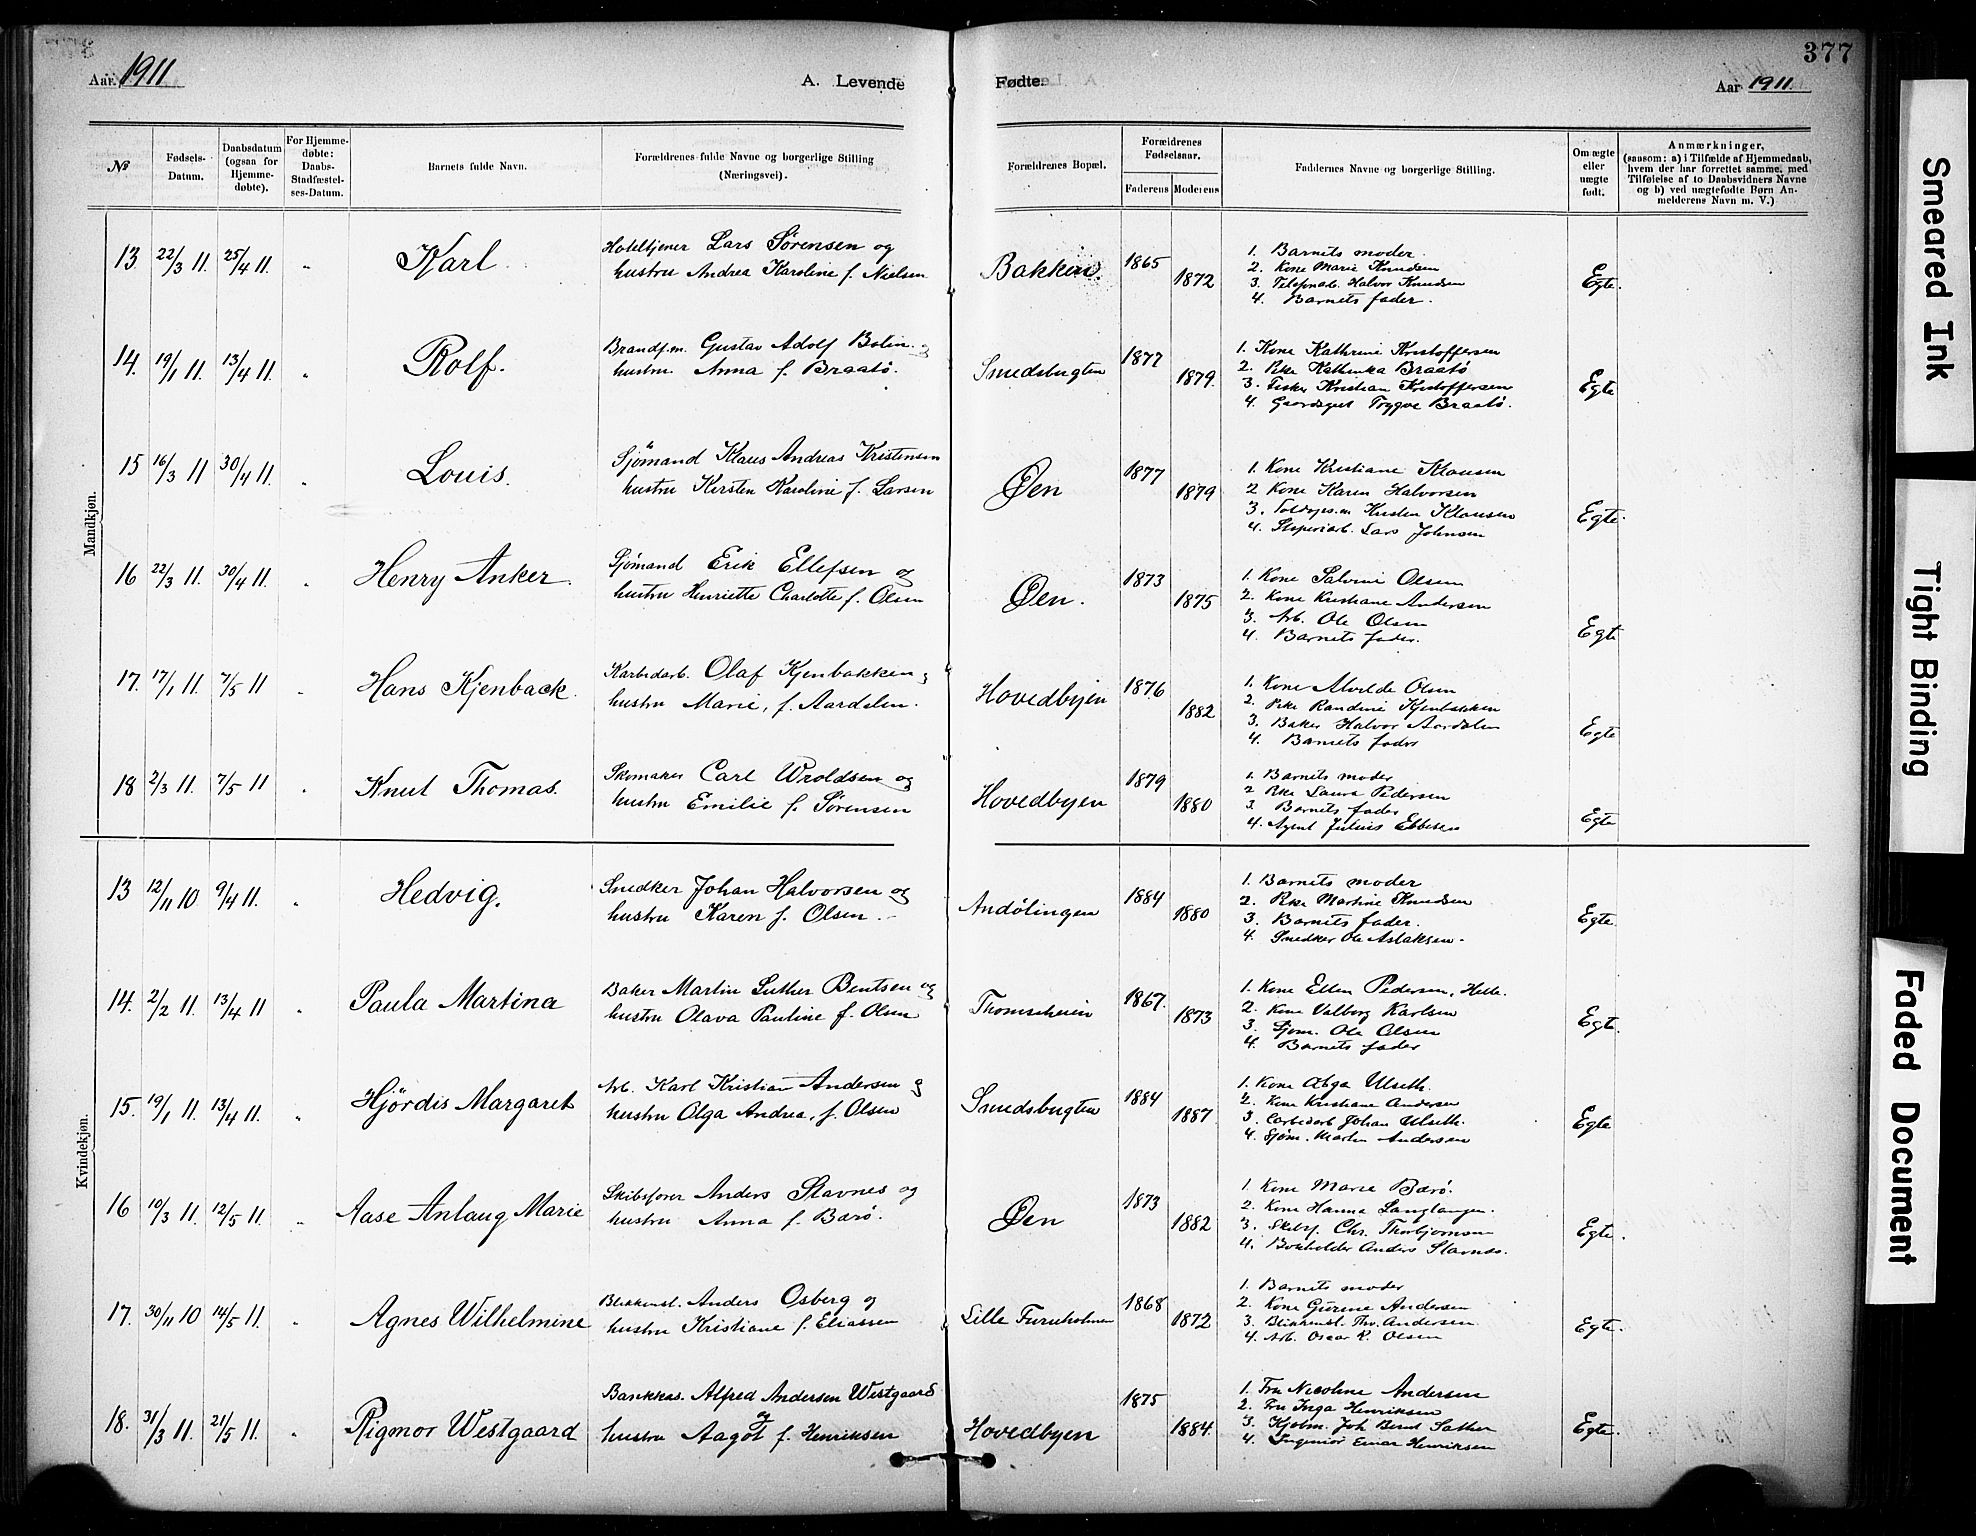 377
Aar. 1911
A. Levende
Fødte.
Aar 1911.
№
Fødsels-Datum.
Daabsdatum (ogsaa for Hjemme-døbte).
For Hjemme-døbte: Daabs-Stadfæstel-ses-Datum.
Barnets fulde Navn.
Forældrenes fulde Navne og borgerlige Stilling
(Næringsvei).
Forældrenes Bopæl.
Forældrenes Fødselsaar.
Faderens
Moderens
Faddernes Navne og borgerlige Stilling.
Om ægte eller uægte født.
Anmærkninger,
(saasom: a) i Tilfælde af Hjemmedaab,
hvem der har forrettet samme, med
Tilføielse af to Daabsvidners Navne
og b) ved uægtefødte Børn An-
melderens Navn m. V.)
Mandkjøn.
13 22/3 11. 25/4 11. " Karl.
Hoteltjener Lars Sørensen og
hustru Andrea Karoline f. Nielsen
Bakken. 1865 1872
1. Barnets moder.
2. Kone Marie Knudsen
3. Telefonarb. Halvor Knudsen
4. Barnets fader.
Egte.
14. 19/1 11. 13/4 11. " Rolf.
Brandf.m. Gustav Adolf Bolin og
hustru Anna f. Braatø.
Smedsbugten 1877 1879
1. Kone Kathrine Kristoffersen
2. Pike Kathinka Braatø
3. Fisker Kristian Kristoffersen
4. Trygve Braatø.
Egte
15 16/3 11 30/4 11. " Louis.
Sjømand Klaus Andreas Kristensen
hustru Kirsten Karoline f. Larsen
Øen 1877 1879
1. Kone Kristiane Klausen
2 Kone Karen Halvorsen
3. Klausen
4. Lars Johnsen
Egte.
16 22/3 11. 30/4 11. " Henry Anker.
Sjømand Erik Ellefsen og
hustru Henriette Charlotte f. Olsen
Øen. 1873 1875
1. Kone Salvine Olsen
2. Kone Kristiane Andersen
3. Arb. Ole Olsen
4. Barnets fader.
Egte
17. 17/1 11. 7/5 11 " Hans Kjenback.
Karbidarb. Olaf Kjenbakken og
hustru Marie, f. Aardalen.
Hovedbyen 1876 1882
1. Kone Alvilde Olsen
2. Pike Randine Kjenbakken
3. Baker Halvor Aardalen
4. Barnets fader
Egte
18 2/3 11. 7/5 11 " Knut Thomas.
Skomaker Carl Wroldsen og
hustru Emilie f. Sørensen
Hovedbyen 1879 1880
1. Barnets moder
2 Pike Laura Pedersen
3. Barnets fader
4. Agent Julius Ebbesen
Egte
Kvindekjøn.
13 12/11 10 9/4 11. " Hedvig.
Snedker Johan Halvorsen og
hustru Karen f. Olsen.
Andølingen 1884 1880
1. Barnets moder
2. Pike Martine Knudsen
3. Barnets fader.
4. Snedker Ole Aslaksen.
Egte.
14. 2/2 11. 13/4 11 " Paula Martina
Baker Martin Luther Bentsen og
hustru Olava Pauline f. Olsen
Thomesheien 1867. 1873
1. Kone Ellen Pedersen, Helle.
2. Kone Valborg Karlsen
3. Sjøm. Ole Olsen
4. Barnets fader
Egte.
15. 19/1 11. 13/4 11. " Hjördis Margaret
Arb. Karl Kristian Andersen og
hustru Olga Andrea, f. Olsen
Smedsbugten 1884 1887.
1. Kone Ulseth.
2. Kone Kristiane Andersen
3. Carbidarb Johan Ulseth.
4. Sjøm. Martin Andersen
Egte
16 10/3 11. 12/5 11. " Aase Anlaug Marie
Skibsfører Anders Stavnes og
hustru Anna f. Barø.
Øen 1873 1882
1. Kone Marie Barø.
2. Kone Hanna Langtangen.
3. Skibsf. Chr. Thorbjørnsen
4. Bokholder Anders Stavnes.
Egte.
17. 30/11 10 14/5 11. " Agnes Wilhelmine
Blikkensl. Anders Osberg og
hustru Kristiane f. Eliassen
Lille Furuholmen 1868 1872
1. Barnets moder
2. Kone Gurine Andersen
3. Blikkensl. Thv. Andersen.
4. Arb. Oscar K. Olsen
Egte.
18. 31/3 11. 21/5 11. Rigmor Westgaard
Bankkas. Alfred Andersen Westgaard
og
hustru Aagot f. Henriksen
Hovedbyen 1875 1884
1. Fru Nicoline Andersen
2. Fru Inga Henriksen
3. Kjøbm. Joh Bernt Sather
4. Einar Henriksen
Egte.
Smeared Ink
Tight Binding
Faded Document